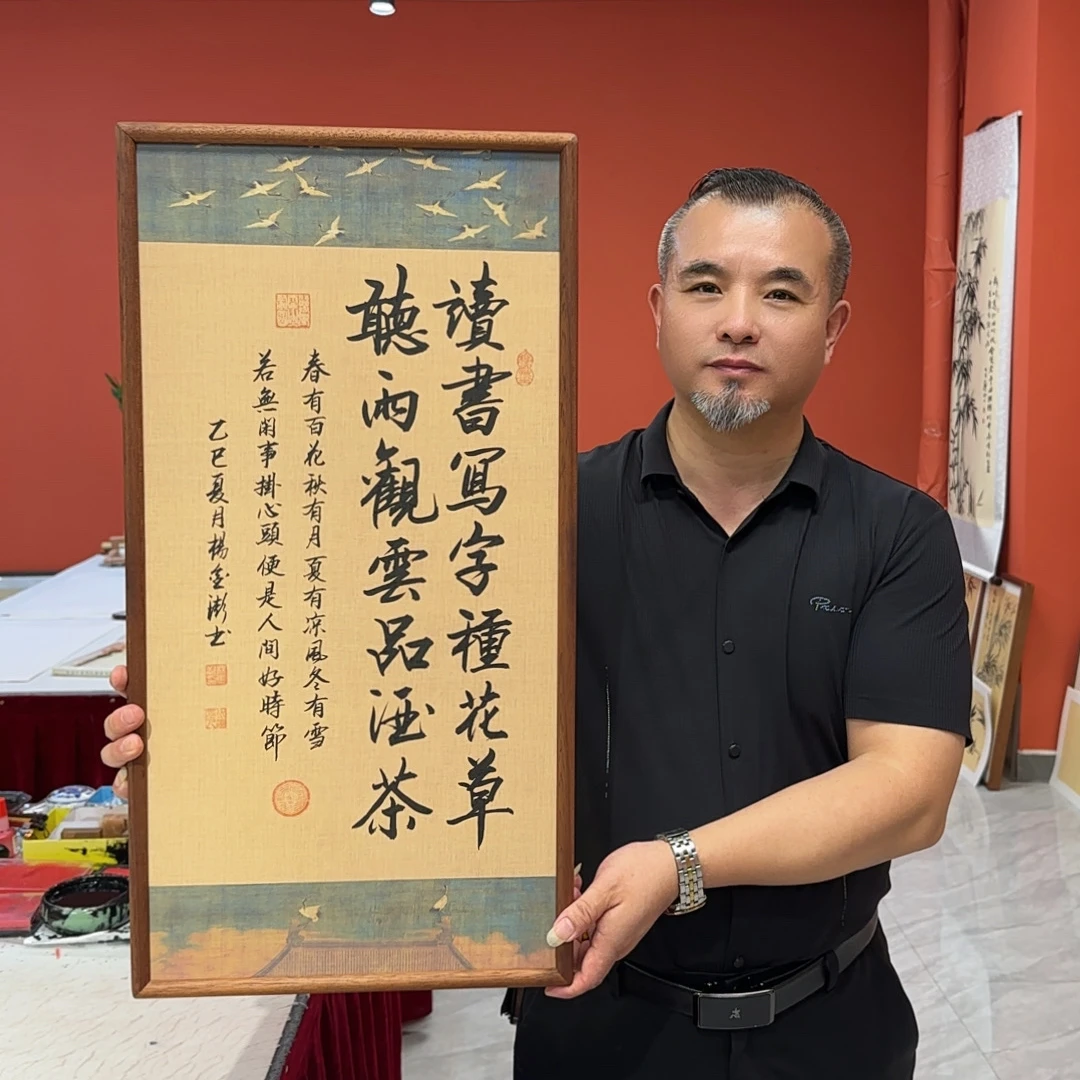 讀書寫字種花草
聽雨觀雲品酒茶
春有百花秋有月夏有涼風冬有雪
若無閑事掛心頭便是人間好時節
乙巳夏月楊金澎书